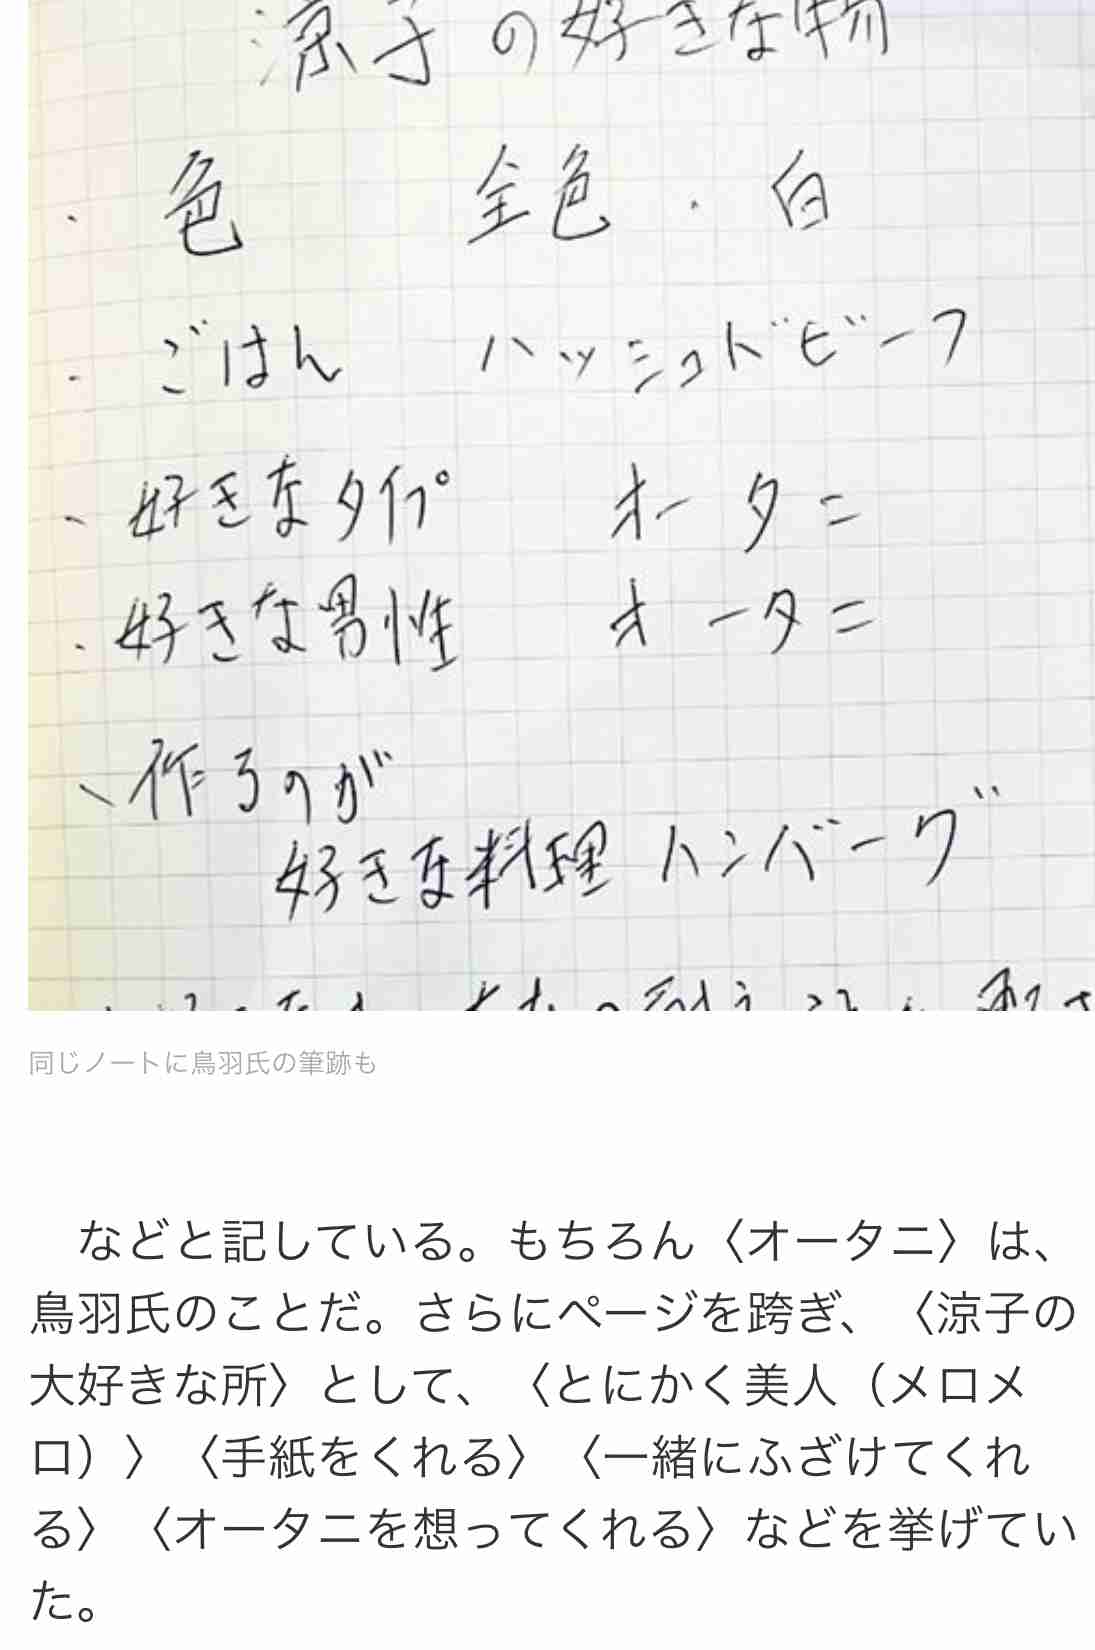 涼子の好きな物
・色 全色・白
・ごはん ハッシュドビーフ
、好きなタイプ オータニ
・好きな男性 オータニ
、作るのが
好きな料理 ハンバーグ
同じノートに鳥羽氏の筆跡も
などと記している。もちろん〈オータニ〉は、
鳥羽氏のことだ。さらにページを跨ぎ、〈涼子の
大好きな所〉として、〈とにかく美人（メロメ
ロ）〉〈手紙をくれる〉〈一緒にふざけてくれ
る〉〈オータニを想ってくれる〉などを挙げてい
た。